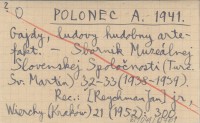 ? O POLONEC A. 1941.
Gajdy, ľudový hudobný arte-
fakt. – Sborník Muzeálnej
Slovenskej Spoločnosti (Turč.
Sv. Martin) 32–33 (1938–1939).
Rec.: [Reychman Jan] jr,
Wierchy (Kraków) 21 (1952): 300.